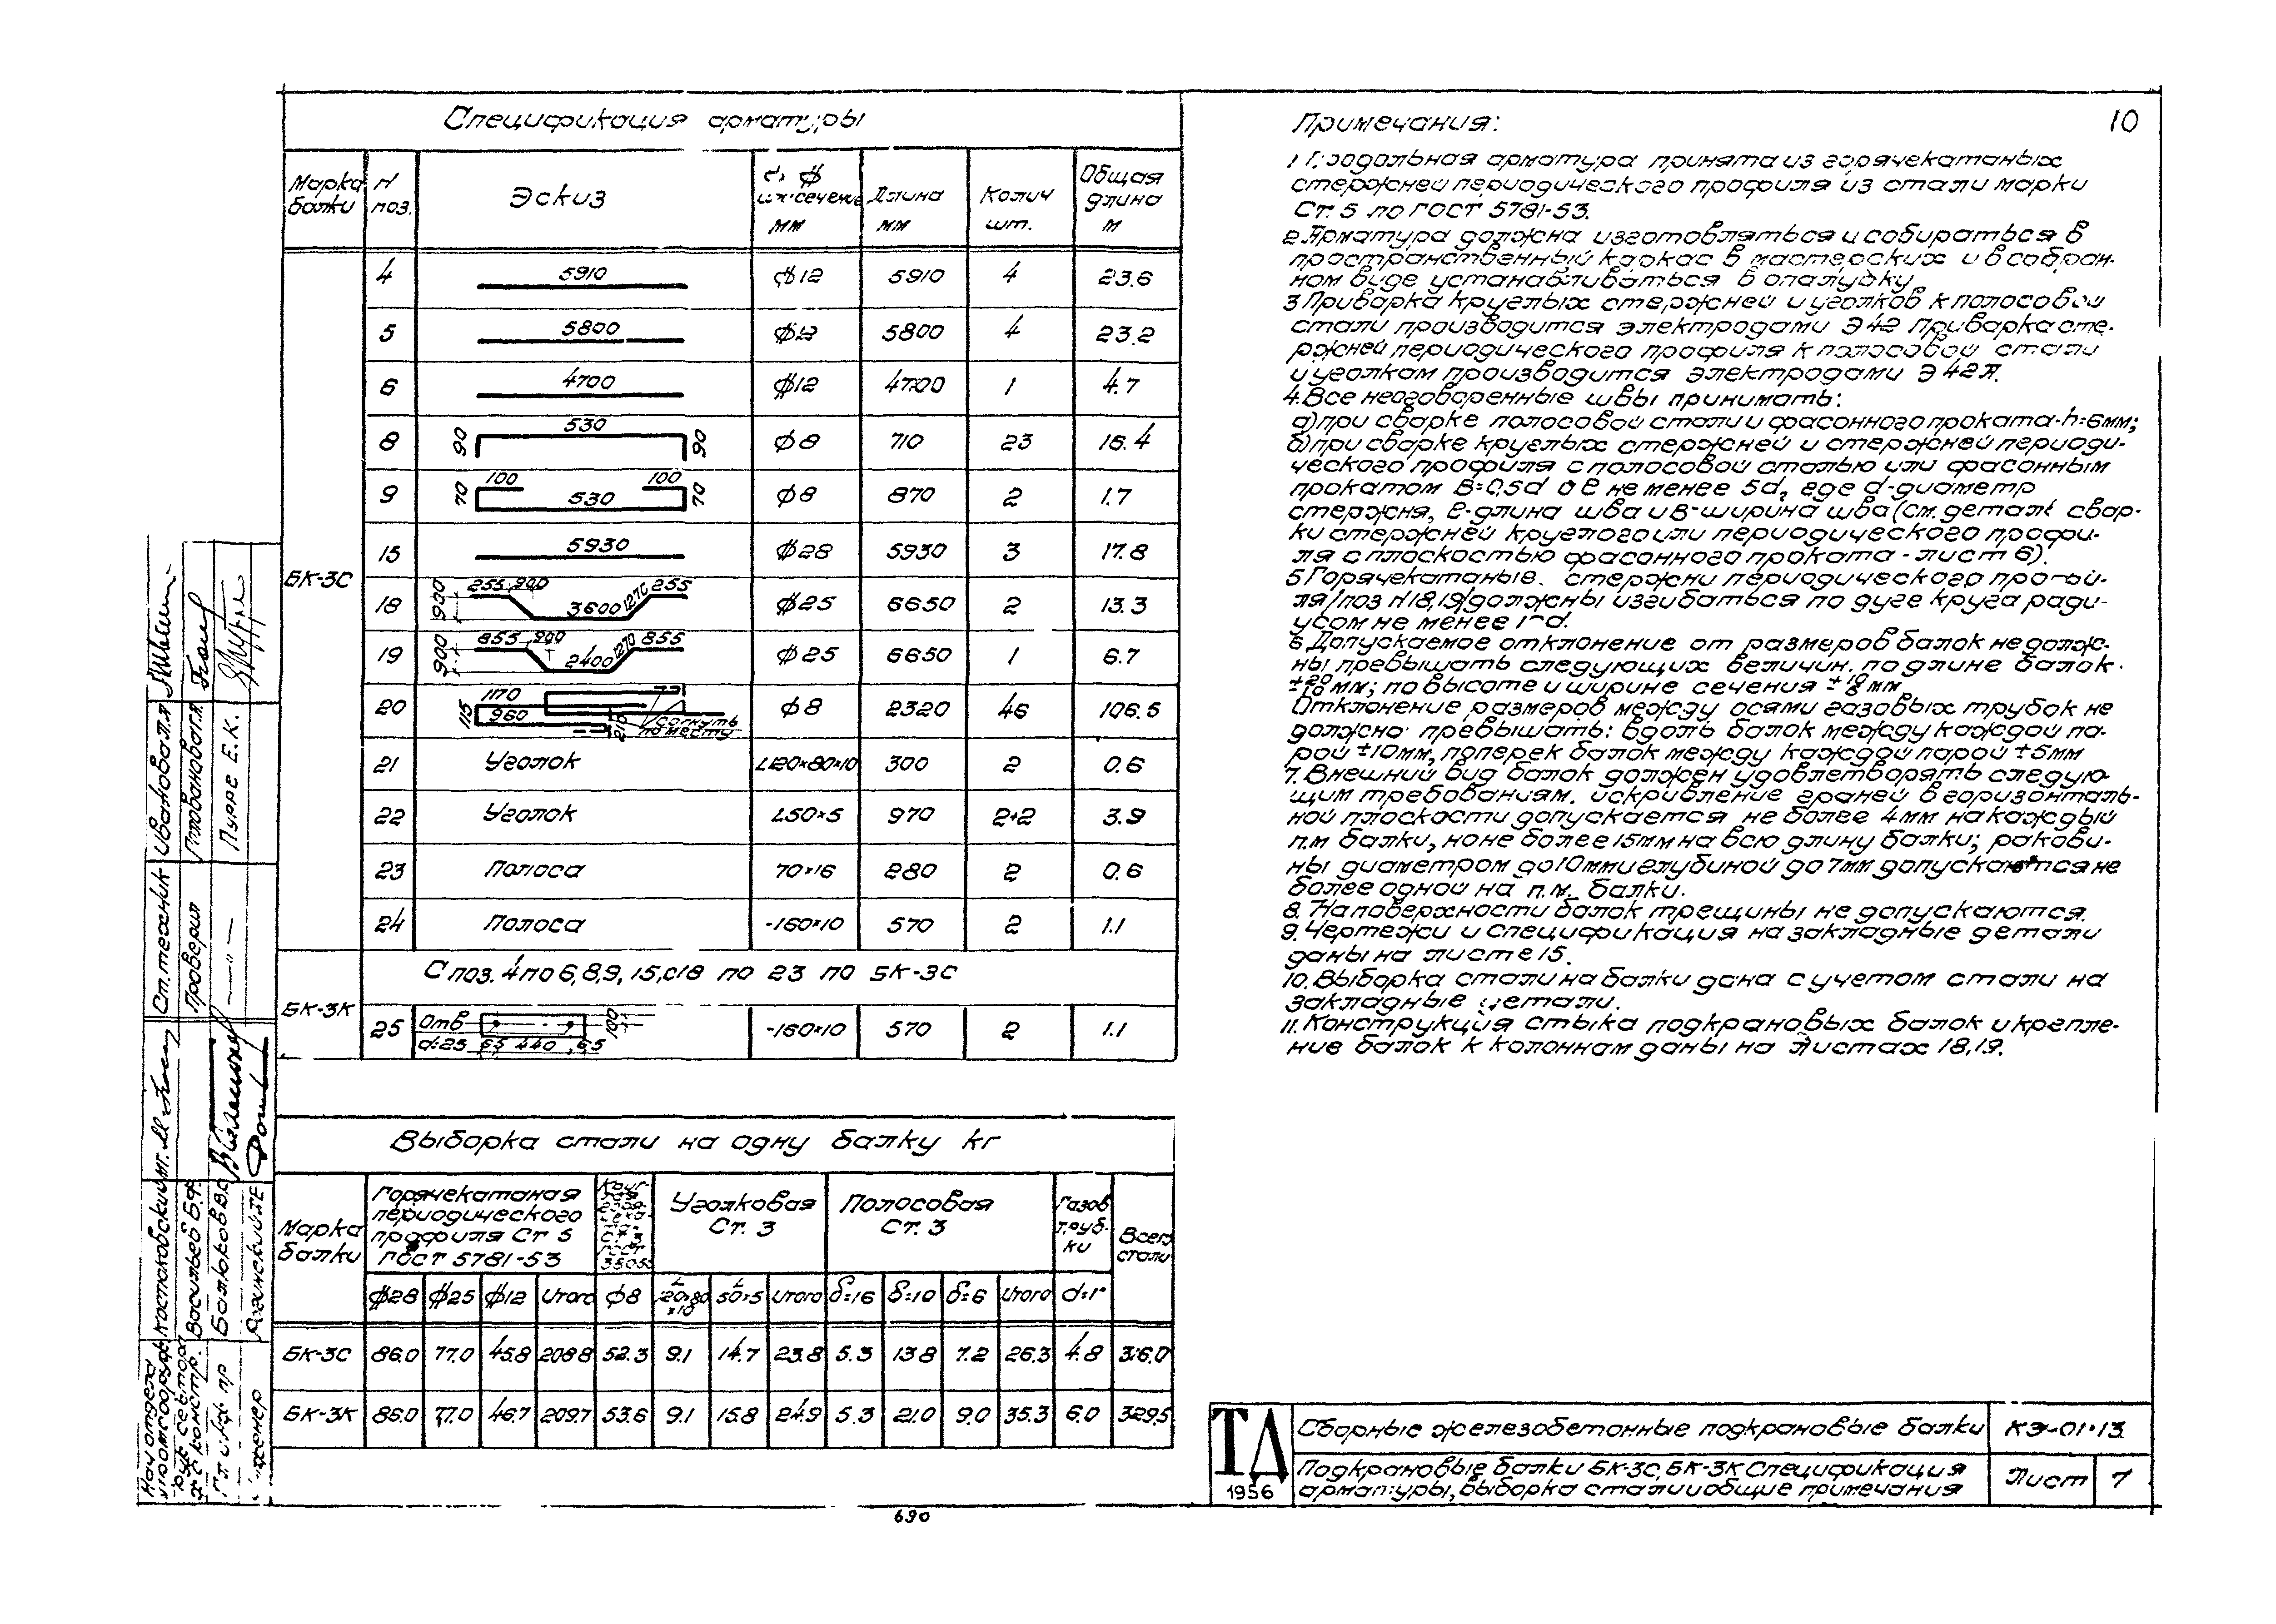 10
Спецификация арматуры
Марка балки | № поз. | Эскиз | сечение мм | Длина мм | Колич шт. | Общая длина м
БК-3С
4 | 5910 | ф12 | 5910 | 4 | 23.6
5 | 5800 | ф12 | 5800 | 4 | 23.2
6 | 4700 | ф12 | 4700 | 1 | 4.7
8 | 90 530 90 | ф8 | 710 | 23 | 16.4
9 | 70 100 530 100 70 | ф8 | 870 | 2 | 1.7
15 | 5930 | ф28 | 5930 | 3 | 17.8
18 | 900 255 900 3600 1270 255 | ф25 | 6650 | 2 | 13.3
19 | 900 855 900 2400 1270 855 | ф25 | 6650 | 1 | 6.7
20 | 115 1170 960 210 согнуть по месту | ф8 | 2320 | 46 | 106.5
21 | Уголок | L120×80×10 | 300 | 2 | 0.6
22 | Уголок | L50×5 | 970 | 2+2 | 3.9
23 | Полоса | 70×16 | 280 | 2 | 0.6
24 | Полоса | -160×10 | 570 | 2 | 1.1
БК-3К
С поз. 4 по 6, 8, 9, 15, с 18 по 23 по БК-3С
25 | Отв d=25 65 440 65 100 | -160×10 | 570 | 2 | 1.1
Выборка стали на одну балку кг
Марка балки | Горячекатаная периодического профиля Ст 5 ГОСТ 5781-53 | Ст 3 ГОСТ | Уголковая Ст. 3 | Полосовая Ст. 3 | Газов трубки | Всего стали
ф28 | ф25 | ф12 | Итого | ф8 | L120×80×10 | L50×5 | Итого | δ=16 | δ=10 | δ=6 | Итого | d=1"
БК-3С | 86.0 | 77.0 | 45.8 | 208.8 | 52.3 | 9.1 | 14.7 | 23.8 | 5.3 | 13.8 | 7.2 | 26.3 | 4.8 | 316.0
БК-3К | 86.0 | 77.0 | 46.7 | 209.7 | 53.6 | 9.1 | 15.8 | 24.9 | 5.3 | 21.0 | 9.0 | 35.3 | 6.0 | 329.5
Примечания:
1 Продольная арматура принята из горячекатаных
стержней периодического профиля из стали марки
Ст. 5 по ГОСТ 5781-53.
2. Арматура должна изготовляться и собираться в
пространственный каркас в мастерских и в собран-
ном виде устанавливаться в опалубку
3 Приварка круглых стержней и уголков к полосовой
стали производится электродами Э42 Приварка сте-
ржней периодического профиля к полосовой стали
и уголкам производится электродами Э42А.
4. Все неоговоренные швы принимать:
а) при сварке полосовой стали и фасонного проката - h=6мм;
б) при сварке круглых стержней и стержней периоди-
ческого профиля с полосовой сталью или фасонным
прокатом B=0,5d а ℓ не менее 5d, где d-диаметр
стержня, ℓ-длина шва и B-ширина шва (см. деталь свар-
ки стержней круглого или периодического профи-
ля с плоскостью фасонного проката - лист 6).
5 Горячекатаные стержни периодического профи-
ля /поз №18,19/ должны изгибаться по дуге круга ради-
усом не менее d.
6. Допускаемое отклонение от размеров балок не долж-
ны превышать следующих величин. по длине балок
мм; по высоте и ширине сечения мм
Отклонение размеров между осями газовых трубок не
должно превышать: вдоль балок между каждой па-
рой ±10мм, поперек балок между каждой парой ±5мм
7. Внешний вид балок должен удовлетворять следую-
щим требованиям. искривление граней в горизонталь-
ной плоскости допускается не более 4мм на каждый
п.м балки, но не более 15мм на всю длину балки; ракови-
ны диаметром до 10мм и глубиной до 7мм допускаются не
более одной на п.м. балки.
8. На поверхности балок трещины не допускаются.
9. Чертежи и спецификация на закладные детали
даны на листе 15.
10. Выборка стали на балки дана с учетом стали на
закладные детали.
11. Конструкция стыка подкрановых балок и крепле-
ние балок к колоннам даны на листах 18,19.
ТД
1956
Сборные железобетонные подкрановые балки | КЭ-01-13
Подкрановые балки БК-3С, БК-3К Спецификация
арматуры, выборка стали и общие примечания
Лист | 7
690
Ст. техник
Проверил
Пурре Е.К.
Костюковский
Васильев Б.Ф.
Нач отдела